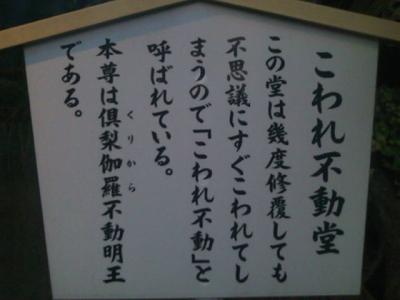 こわれ不動堂
この堂は幾度修覆しても
不思議にすぐこわれてし
まうので「こわれ不動」と
呼ばれている。
本尊は倶梨伽羅不動明王
くりから
である。